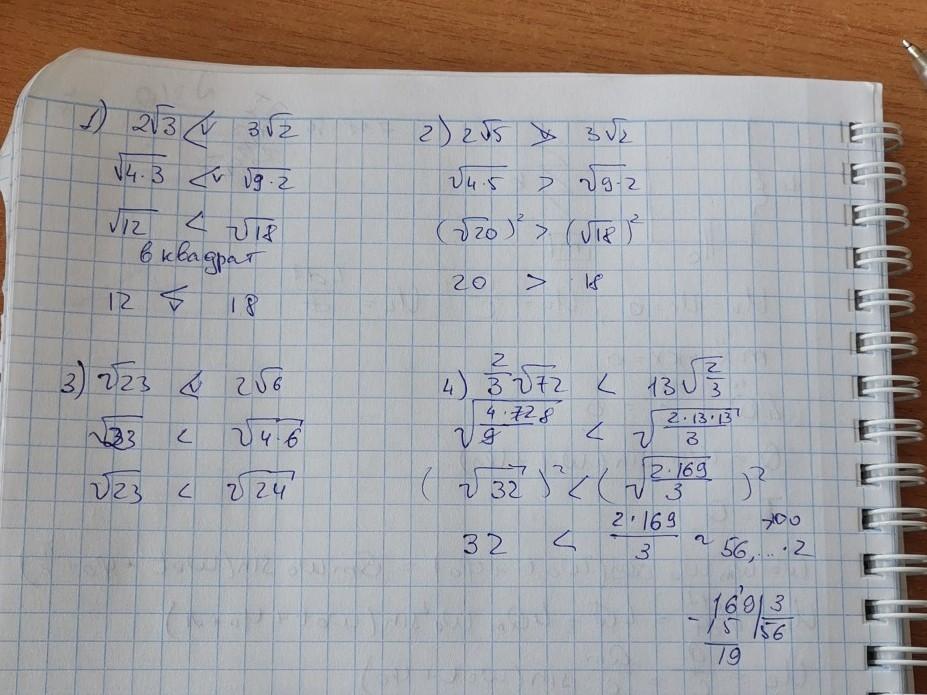 1) 2√3 < 3√2
√4·3 < √9·2
√12 < √18
в квадрат
12 < 18
2) 2√5 > 3√2
√4·5 > √9·2
(√20)² > (√18)²
20 > 18
3) √23 < 2√6
√23 < √4·6
√23 < √24
4) 2/3 √72 < 13√2/3
√4·72 8/9 < √2·13·13/3
(√32)² < (√2·169/3)²
32 < 2·169/3 ~ 56,...·2 >100
169 | 3
- 15 | 56
19